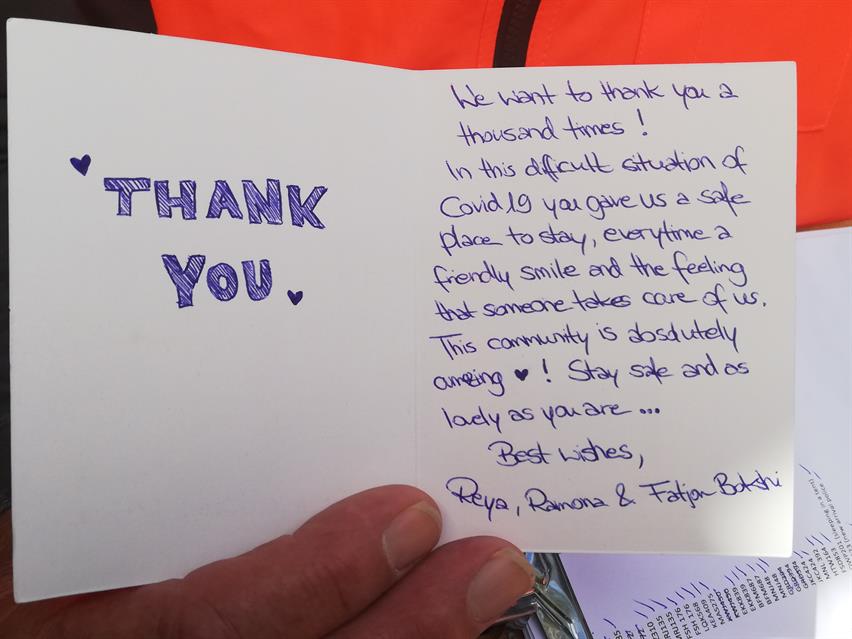 THANK
YOU
We want to thank you a
thousand times!
In this dificult situation of
Covid 19 you gave us a safe
place to stay, everytime a
friendly smile and the feeling
that someone takes care of us.
This community is absolutely
amazing ♥! Stay safe and as
lovely as you are ...
Best wishes,
Reya, Ramona & Fatjon Bakshi